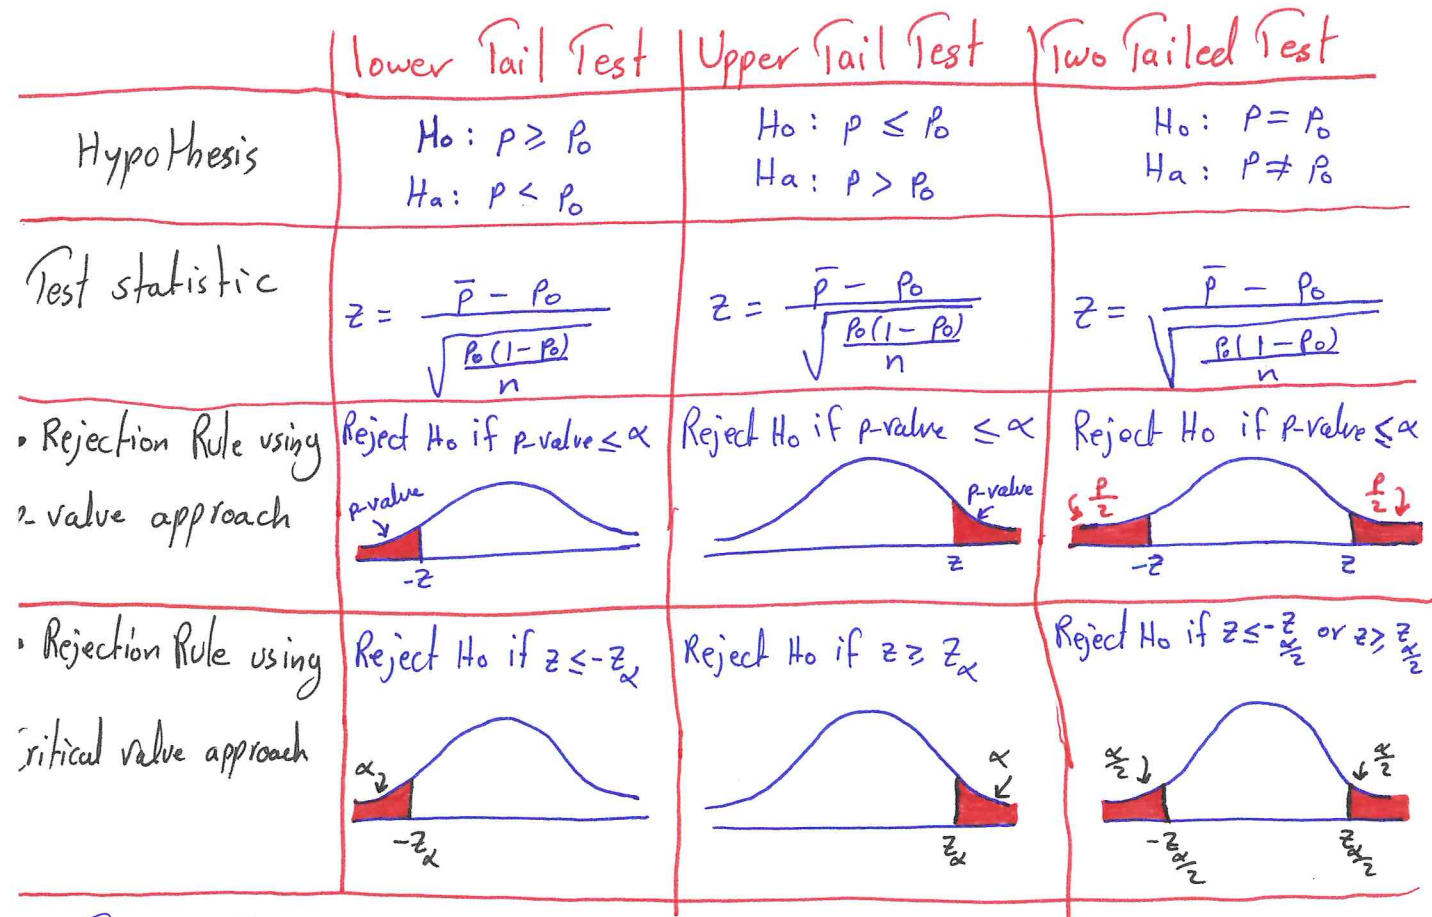 lower Tail Test
Upper Tail Test
Two Tailed Test
Hypothesis
Ho: p ≥ p₀
Ha: p < p₀
Ho: p ≤ p₀
Ha: p > p₀
Ho: p = p₀
Ha: p ≠ p₀
Test statistic
z = (p̄ - p₀) / √(p₀(1-p₀)/n)
z = (p̄ - p₀) / √(p₀(1-p₀)/n)
z = (p̄ - p₀) / √(p₀(1-p₀)/n)
• Rejection Rule using
value approach
Reject Ho if p-value ≤ α
p-value
-z
Reject Ho if p-value ≤ α
p-value
z
Reject Ho if p-value ≤ α
p/2
p/2
-z
z
• Rejection Rule using
ritical value approach
Reject Ho if z ≤ -zα
α
-zα
Reject Ho if z ≥ zα
α
zα
Reject Ho if z ≤ -zα/2 or z ≥ zα/2
α/2
α/2
-zα/2
zα/2